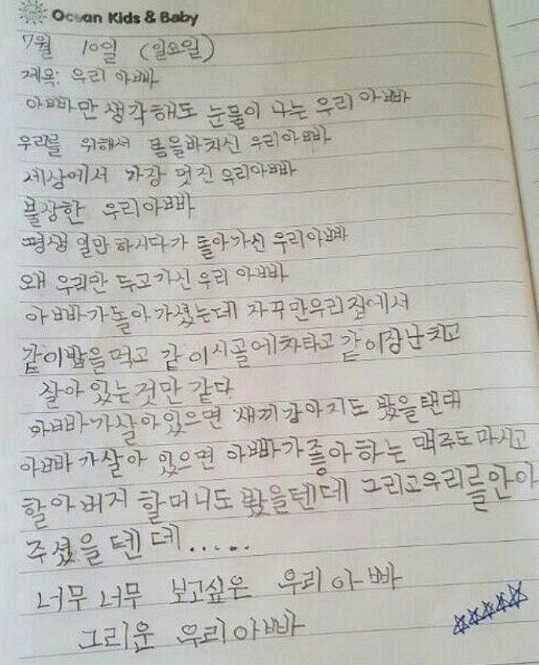 Ocean Kids & Baby
7월 10일 (일요일)
제목: 우리 아빠
아빠만 생각해도 눈물이 나는 우리 아빠
우리를 위해서 몸을바치신 우리아빠
세상에서 가장 멋진 우리아빠
불상한 우리아빠
평생 일만 하시다가 돌아가신 우리아빠
왜 우리만 두고가신 우리 아빠
아빠가돌아가셨는데 자꾸만우리집에서
같이밥을먹고 같이시골에차타고 같이장난치고
살아있는것만 같다
아빠가살아있으면 새끼강아지도 봤을탠대
아빠가살아 있으면 아빠가좋아하는 맥주도마시고
할아버지 할머니도 봤을텐데 그리고우리를안아
주셨을텐데.....
너무너무 보고싶은 우리아빠
그리운 우리아빠